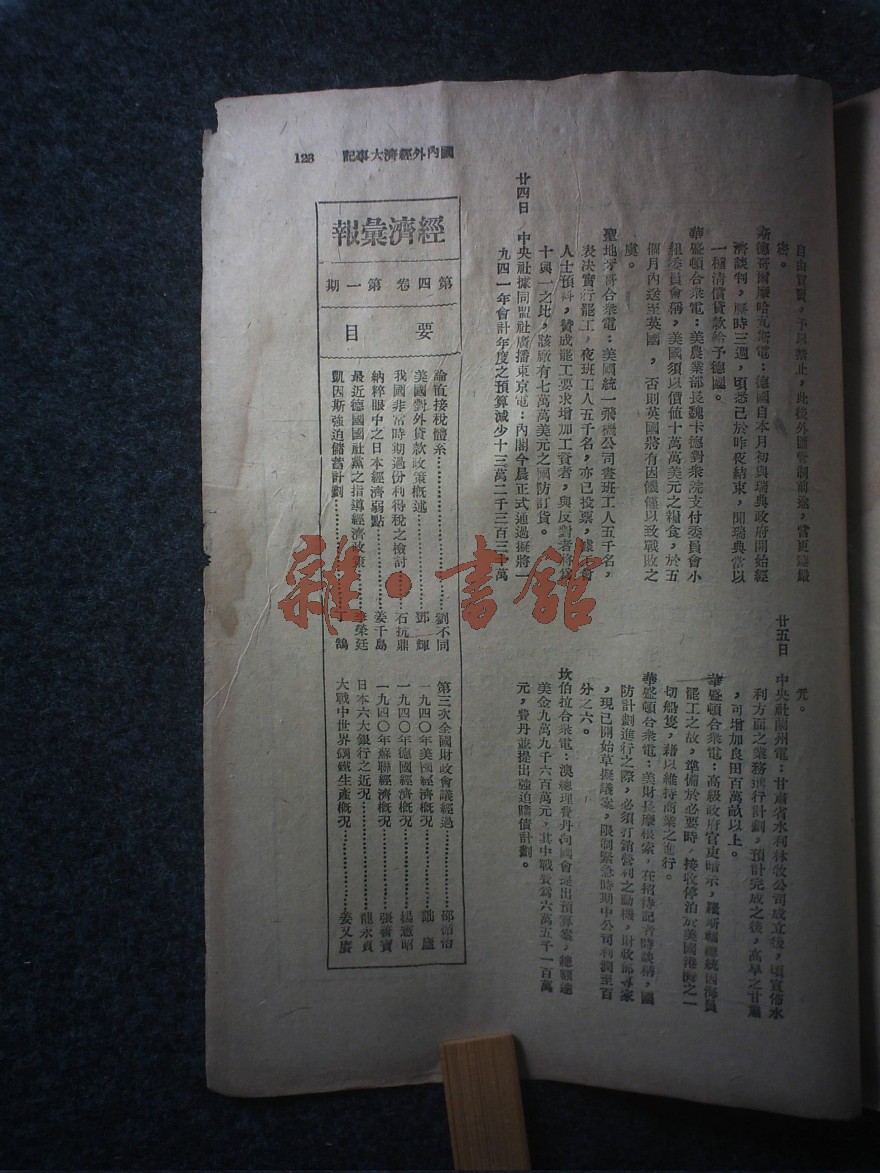 國內外經濟大事記 128
自由買賣，予以禁止，此後外匯管制前途，當更趨嚴
密。
斯德哥爾摩哈瓦斯電：德國自本月初與瑞典政府開始經
濟談判，歷時三週，頃悉已於昨夜結束，聞瑞典當以
一種清償貸款給予德國。
華盛頓合衆電：美農業部長魏卡德對衆院支付委員會小
組委員會稱，美國須以價値十萬萬美元之糧食，於五
個月內送至英國，否則英國將有因饑饉以致戰敗之
虞。
聖地牙哥合衆電：美國統一飛機公司晝班工人五千名，
表決實行罷工，夜班工人五千名，亦已投票，據工會
人士預料，贊成罷工要求增加工資者，與反對者將爲
十與一之比，該廠有七萬萬美元之國防訂貨。
廿四日 中央社據同盟社廣播東京電：內閣今晨正式通過擬將一
九四一年會計年度之預算減少十三萬二千三百三十萬
元。
廿五日 中央社蘭州電：甘肅省水利林牧公司成立後，頃宣佈水
利方面之業務進行計劃，預計完成之後，高旱之甘肅
，可增加良田百萬畝以上。
華盛頓合衆電：高級政府官吏暗示，羅斯福總統因海員
罷工之故，準備於必要時，接收停泊於美國港灣之一
切船隻，藉以維持商業之進行。
華盛頓合衆電：美財長摩根索，在招待記者時談稱，國
防計劃進行之際，必須打銷營利之動機，財政部專家
，現已開始草擬議案，限制緊急時期中公司利潤至百
分之六。
坎伯拉合衆電：澳總理費丹向國會提出預算案，總額達
美金九萬九千六百萬元，其中戰費爲六萬五千一百萬
元，費丹並提出強迫購債計劃。
經濟彙報
第四卷 第一期
要目
論直接稅體系 劉不同
美國對外貸款政策概述 鄧輝
我國非常時期過份利得稅之檢討 石抗鼎
納粹眼中之日本經濟弱點 姜千島
最近德國國社黨之指導經濟政策 李榮廷
凱因斯強迫儲蓄計劃 鵠
第三次全國財政會議經過 邵循怡
一九四〇年美國經濟概況 盧
一九四〇年德國經濟概況 楊憲昭
一九四〇年蘇聯經濟概況 張喬寶
日本六大銀行之近況 龍永貞
大戰中世界鋼鐵生產概況 姜又廣
雜·書館